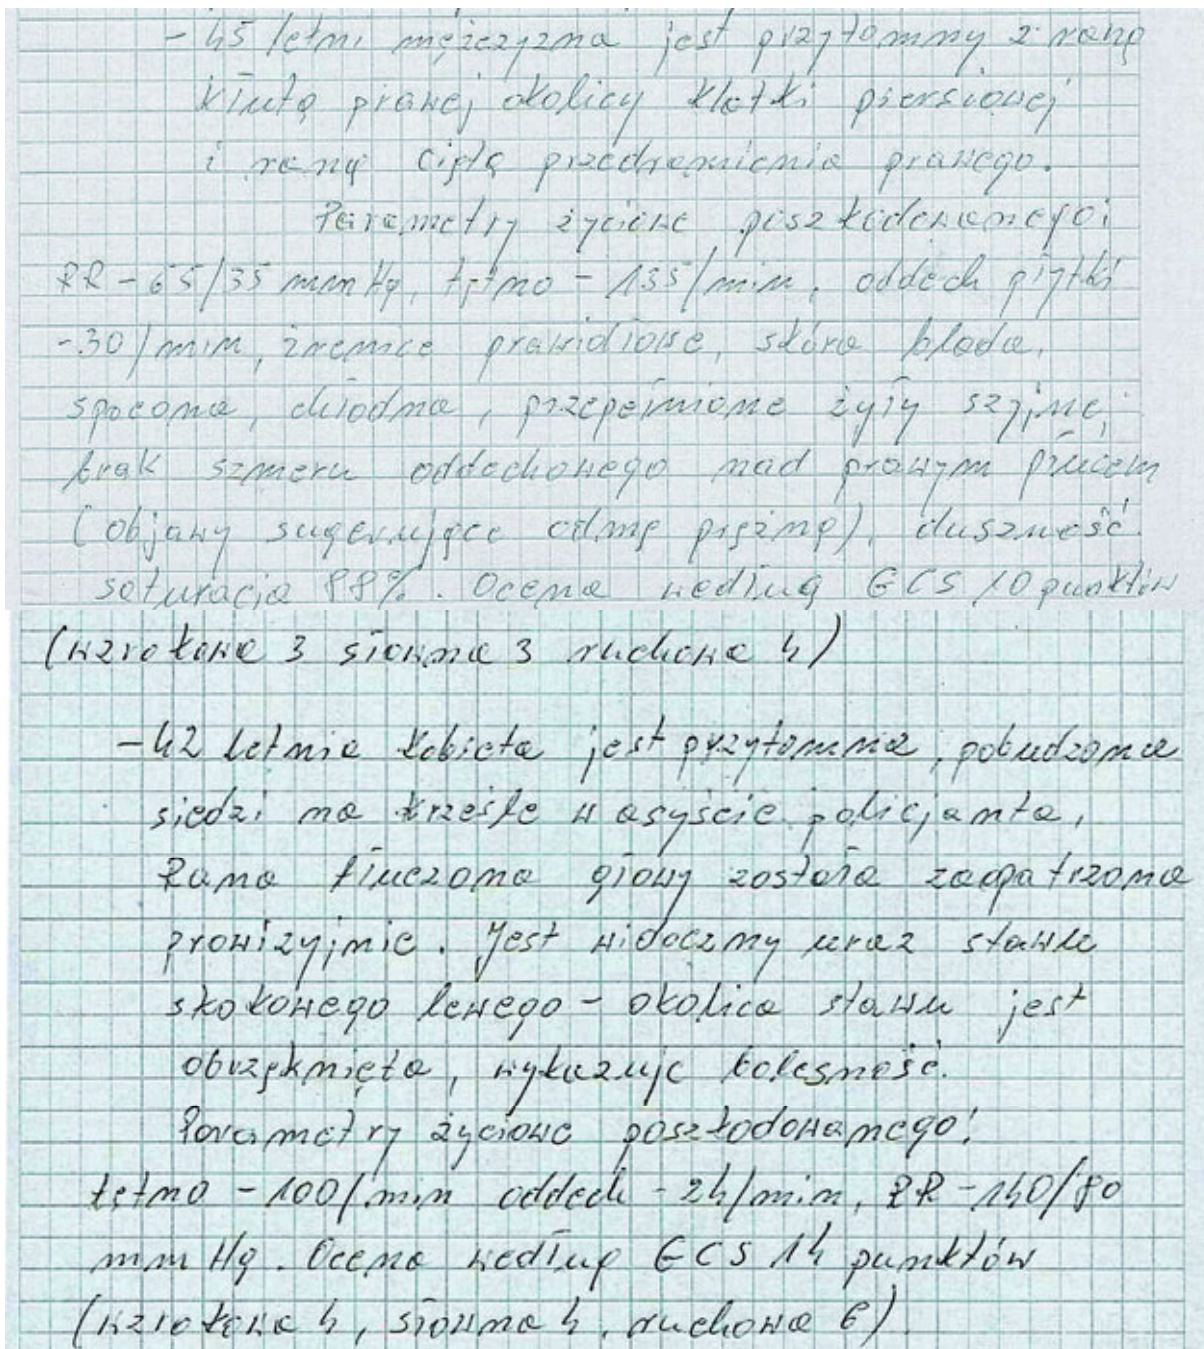 - 45 letni mężczyzna jest przytomny z raną
kłutą prawej okolicy klatki piersiowej
i raną ciętą przedramienia prawego.
Parametry życiowe poszkodowanego:
RR - 65/35 mmHg, tętno - 135/min, oddech płytki
-30/min, źrenice prawidłowe, skóra blada,
spocona, chłodna, przepełnione żyły szyjne,
brak szmeru oddechowego nad prawym płucem
(objawy sugerujące odmę prężną), duszność.
saturacja 88%. Ocena według GCS 10 punktów
(wzrokowa 3 słowna 3 ruchowa 4)
- 42 letnia kobieta jest przytomna, pobudzona
siedzi na krześle w asyście policjanta,
Rana tłuczona głowy została zaopatrzona
prowizyjnie. Jest widoczny uraz stawu
skokowego lewego - okolica stawu jest
obrzęknięta, wykazuje bolesność.
Parametry życiowe poszkodowanego:
tętno - 100/min oddech - 24/min, RR - 140/80
mm Hg. Ocena według GCS 14 punktów
(wzrokowa 4, słowna 4, ruchowa 6)